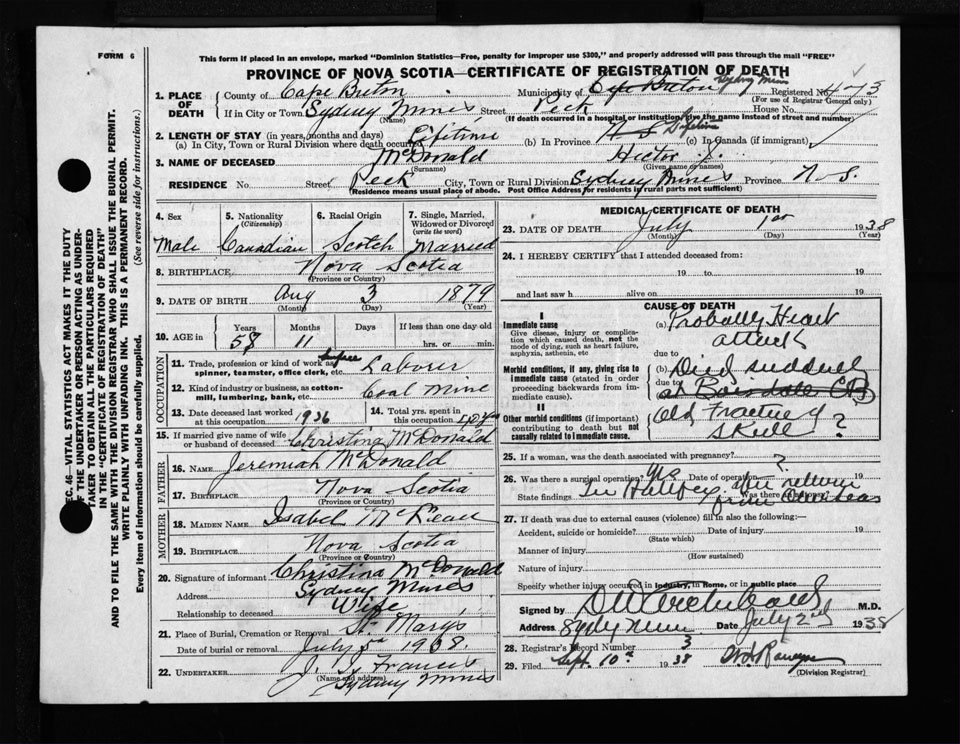 FORM 6
This form if placed in an envelope, marked "Dominion Statistics—Free, penalty for improper use $300," and properly addressed will pass through the mail "FREE"
PROVINCE OF NOVA SCOTIA—CERTIFICATE OF REGISTRATION OF DEATH
SEC. 46—VITAL STATISTICS ACT MAKES IT THE DUTY
OF THE UNDERTAKER OR PERSON ACTING AS UNDER-
TAKER TO OBTAIN ALL THE PARTICULARS REQUIRED
IN THE "CERTIFICATE OF REGISTRATION OF DEATH"
AND TO FILE THE SAME WITH THE DIVISION REGISTRAR WHO SHALL ISSUE THE BURIAL PERMIT.
WRITE PLAINLY WITH UNFADING INK. THIS IS A PERMANENT RECORD.
Every item of information should be carefully supplied. (See reverse side for instructions.)
1. PLACE OF DEATH
County of Cape Breton Municipality of Cape Breton Sydney Mines Registered No. 443
(For use of Registrar General only)
If in City or Town Sydney Mines Street Peck House No.
(Name) (If death occurred in a hospital or institution, give the name instead of street and number)
2. LENGTH OF STAY (in years, months and days)
(a) In City, Town or Rural Division where death occurred Lifetime (b) In Province N S Lifetime (c) In Canada (if immigrant)
3. NAME OF DECEASED McDonald Hector J.
(Surname) (Given name or names)
RESIDENCE No. Street Peck City, Town or Rural Division Sydney Mines Province N. S.
(Residence means usual place of abode. Post Office Address for residents in rural parts not sufficient)
4. Sex 5. Nationality (Citizenship) 6. Racial Origin 7. Single, Married, Widowed or Divorced (write the word)
Male Canadian Scotch Married
8. BIRTHPLACE Nova Scotia
(Province or Country)
9. DATE OF BIRTH Aug 3 1879
(Month) (Day) (Year)
10. AGE in Years Months Days If less than one day old
58 11 hrs. or min.
OCCUPATION
11. Trade, profession or kind of work as spinner, teamster, office clerk, etc. Surface Laborer
12. Kind of industry or business, as cotton-mill, lumbering, bank, etc. Coal Mine
13. Date deceased last worked at this occupation 1936 14. Total yrs. spent in this occupation
15. If married give name of wife or husband of deceased Christina McDonald
FATHER
16. NAME Jeremiah McDonald
17. BIRTHPLACE Nova Scotia
(Province or Country)
MOTHER
18. MAIDEN NAME Isabel McLean
19. BIRTHPLACE Nova Scotia
(Province or Country)
20. Signature of informant Christina McDonald
Address Sydney Mines
Relationship to deceased Wife
21. Place of Burial, Cremation or Removal St. Marys
Date of burial or removal July 5th 1938.
22. UNDERTAKER J. J. Francis
(Name and address) Sydney Mines
MEDICAL CERTIFICATE OF DEATH
23. DATE OF DEATH July 1st 1938
(Month) (Day) (Year)
24. I HEREBY CERTIFY that I attended deceased from:
19 to 19
and last saw h alive on 19
CAUSE OF DEATH
I
Immediate cause
Give disease, injury or complication which caused death, not the mode of dying, such as heart failure, asphyxia, asthenia, etc
(a) Probably Heart
attack
Morbid conditions, if any, giving rise to immediate cause (stated in order proceeding backwards from immediate cause).
due to
(b) Died suddenly
due to
II
Other morbid conditions (if important) contributing to death but not causally related to immediate cause.
Old Fractured
Skull ?
25. If a woman, was the death associated with pregnancy? ?
26. Was there a surgical operation? Yes Date of operation 19
State findings See Halifax when return
from Overseas
27. If death was due to external causes (violence) fill in also the following:—
Accident, suicide or homicide? Date of injury 19
(State which)
Manner of injury
(How sustained)
Nature of injury
Specify whether injury occurred in industry, in home, or in public place
Signed by D W Archibald M.D.
Address Sydney Mines Date July 2nd 1938
28. Registrar's Record Number 3
29. Filed Sept. 10th 1938
(Division Registrar)